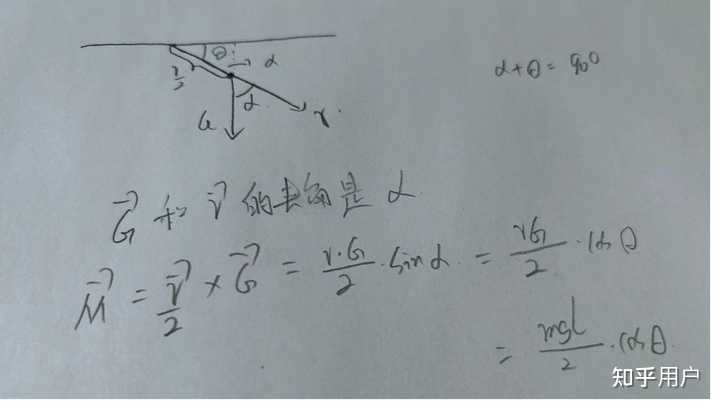 θ α
r/2
α
G
r
α+θ=90°
G⃗ 和 r⃗ 的夹角是 α
M⃗ = r⃗/2 × G⃗ = r·G/2 · sinα = rG/2 · cosθ
= mgl/2 · cosθ
知乎用户